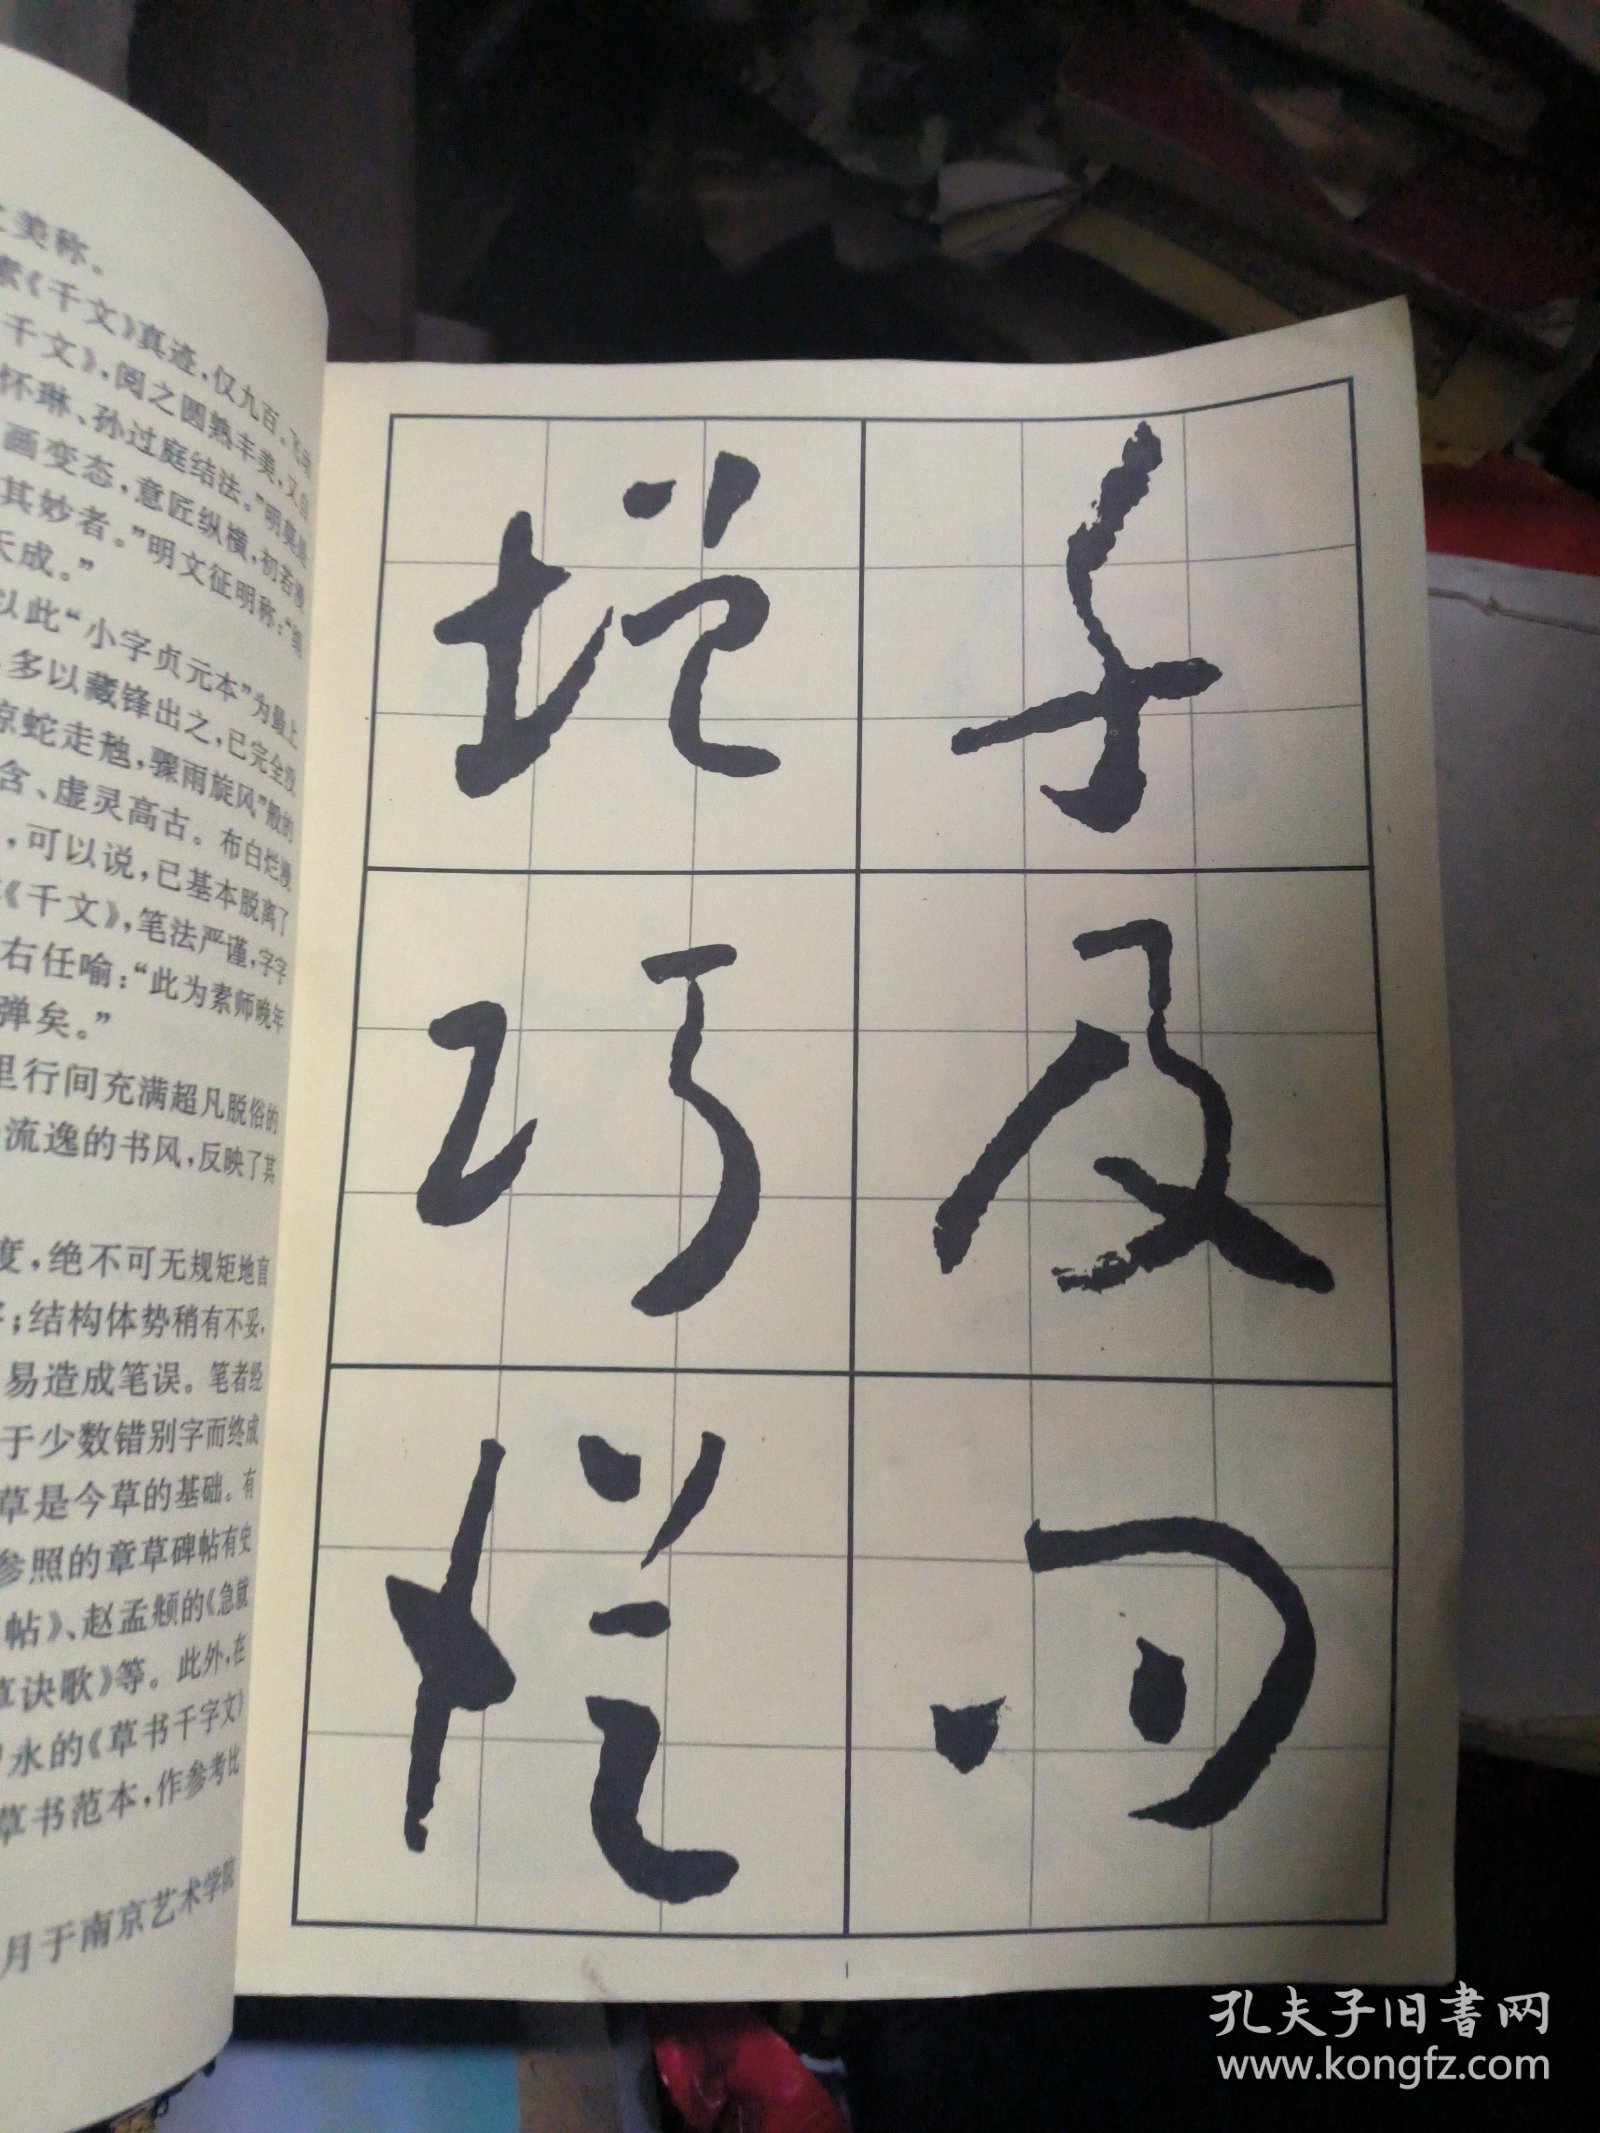 美称。
《千文》真迹,仅九百。飞
千文》,阅之圆熟丰美,又
怀琳、孙过庭结法。”明莫是
画变态,意匠纵横,初若漫
其妙者。”明文征明称:“
天成。”
以此“小字贞元本”为最上
多以藏锋出之,已完全没
惊蛇走虺,骤雨旋风”般的
含、虚灵高古。布白烂漫
,可以说,已基本脱离了
《千文》,笔法严谨,字字
右任喻:“此为素师晚年
弹矣。”
里行间充满超凡脱俗的
流逸的书风,反映了其
度,绝不可无规矩地盲
;结构体势稍有不妥,
易造成笔误。笔者经
于少数错别字而终成
草是今草的基础。有
参照的章草碑帖有史
帖》、赵孟頫的《急就
草诀歌》等。此外,在
永的《草书千字文》
草书范本,作参考比
月于南京艺术学院
及
1
孔夫子旧書网
www.kongfz.com